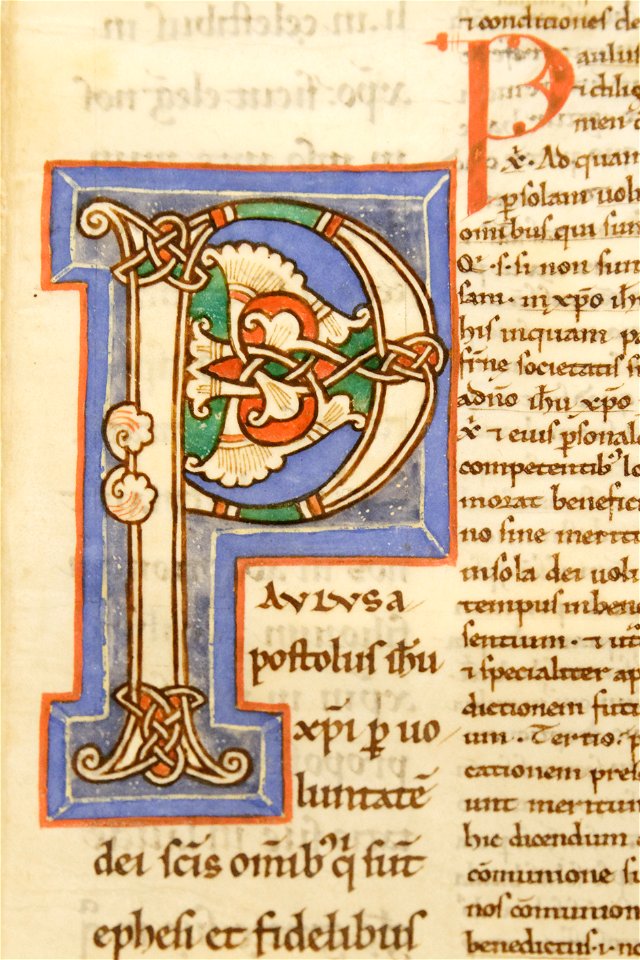 P
AVLVS A
postolus ih̄u
xp̄i ꝑ uo
luntatē
dei sc̄is omībꝰ q̇ sūt
ephesi et fidelibus
⁊ conditiones de
P
aulus
men
x̄. Ad quam
ꝑsolam uolu
omībus qui sun
Q̄. s. si non sun
sam. in xp̄o ih̄
his inquam pa
sine societatis
adn̄o ih̄u xp̄o
⁊ eius ꝑsonal
competentibꝰ lo
morat benefic
no sine merit
insola dei uolu
tempus inbene
sentium. ⁊ ut
⁊ specialiter ap
dictionem fut
um. Tertio. p
cationem pres
unt meritum
hic dicendum
cōmunione
nos cōmunion
benedictus. i. n